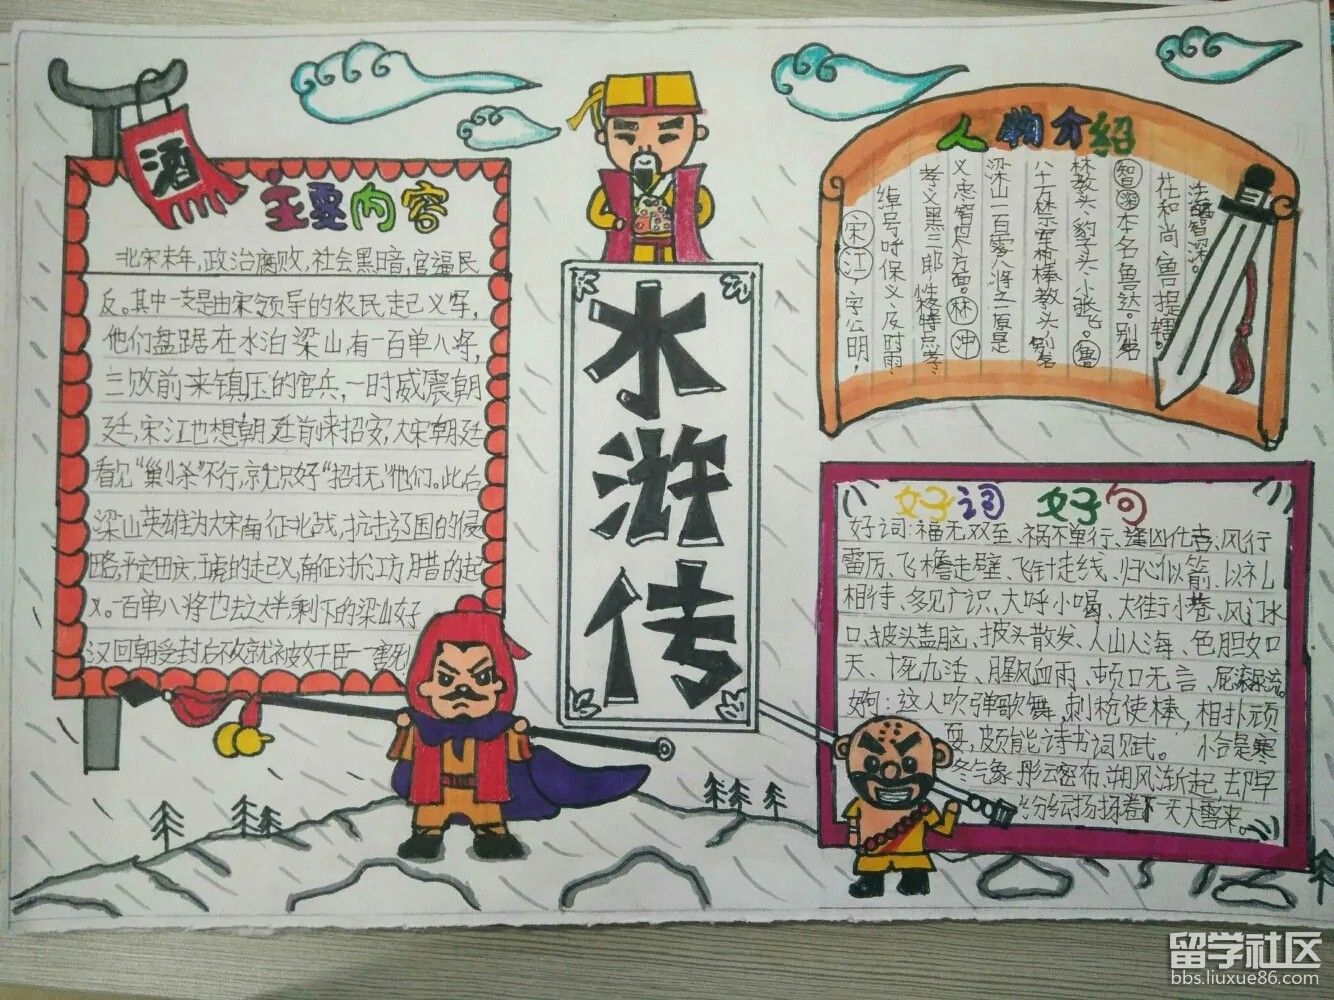 酒
主要内容
北宋末年，政治腐败，社会黑暗，官逼民
反。其中一支是由宋领导的农民起义军，
他们盘踞在水泊梁山，有一百单八将，
三败前来镇压的官兵，一时威震朝
廷，宋江也想朝廷前来招安，大宋朝廷
看见"巢小杀"不行，就只好"招抚"他们。此后
梁山英雄为大宋南征北战，抗击辽国的侵
略，平定田庆、王虎的起义，南征浙江方腊的起
义。一百单八将也去之大半，剩下的梁山好
汉回朝受封后不久就被奸臣一一害死
水浒传
人物介绍
宋江，字公明，
绰号呼保义、及时雨、
孝义黑三郎，性格特点：孝、
义、忠、智见方面。林冲
梁山一百零八将之一原是
八十万禁军枪棒教头，别名
林教头、豹子头、小张飞。鲁
智深本名鲁达。别名
花和尚、鲁提辖、
鲁智深。
好词 好句
好词：福无双至、祸不单行、逢凶化吉、风行
雷厉、飞檐走壁、飞针走线、归心似箭、以礼
相待、多见广识、大呼小喝、大街小巷、风门水
口、披头盖脑、披头散发、人山人海、色胆如
天、十死九活、腥风血雨、顿口无言、屁滚尿流。
好句：这人吹弹歌舞，刺枪使棒，相扑顽
耍，颇能诗书词赋。 恰是寒
冬气象，彤云密布，朔风渐起，却早
纷纷扬扬卷下一天大雪来。
留学社区
bbs.liuxue86.com